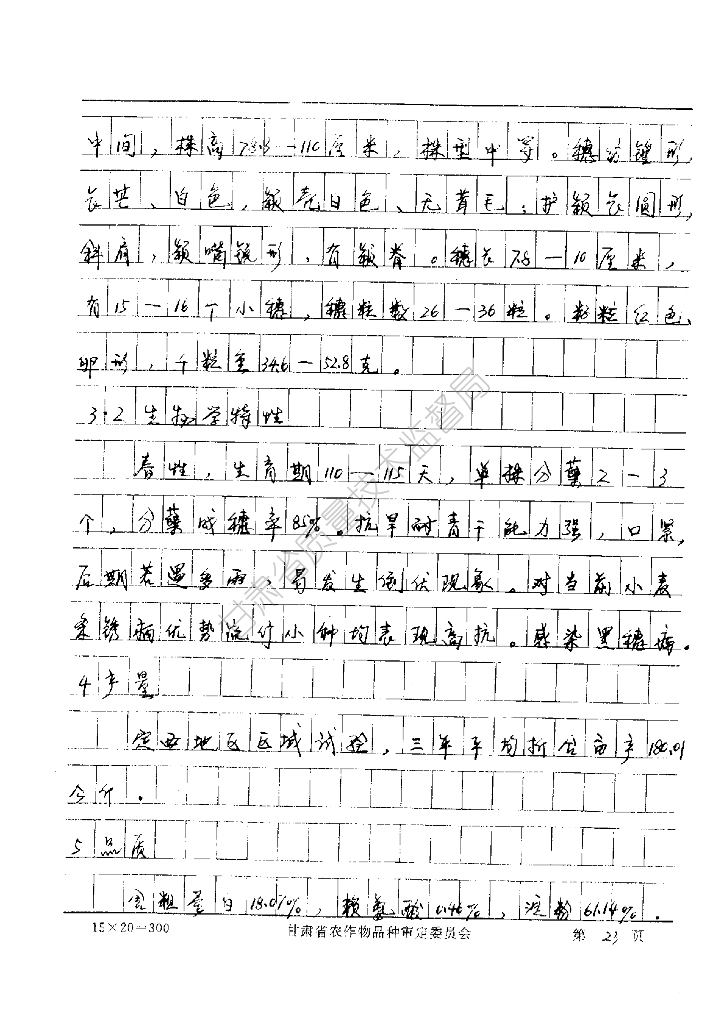 中间，株高78.8—110厘米，株型中等。穗纺锤形，
长芒、白色，颖壳白色、无茸毛；护颖长圆形，
斜肩，颖嘴锐形，有颖脊。穗长7.8—10厘米，
有15—16个小穗，穗粒数26—36粒。籽粒红色、
卵形，千粒重34.6—52.8克。
3.2生物学特性
春性，生育期110—115天，单株分蘖2—3
个，分蘖成穗率85%。抗旱耐青干能力强，口紧，
后期若遇多雨，易发生倒伏现象。对当前小麦
条锈病优势流行小种均表现高抗。感染黑穗病。
4产量
定西地区区域试验，三年平均折合亩产180.01
公斤。
5品质
含粗蛋白18.07%，赖氨酸0.46%，淀粉61.14%。
15×20=300 甘肃省农作物品种审定委员会 第 23 页
甘肃省质量技术监督局